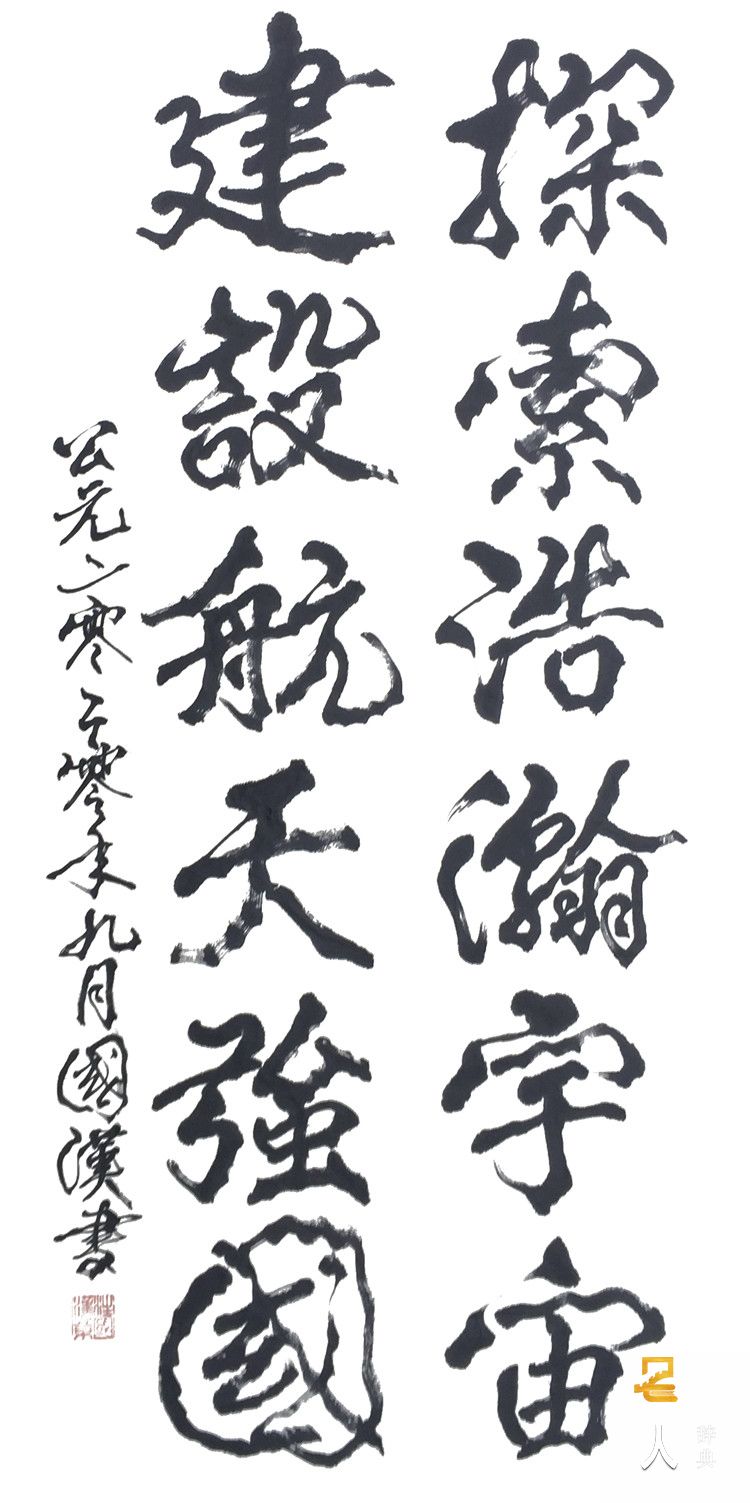 探索浩瀚宇宙
建設航天強國
公元二零二零年九月國漢書
人
辞典